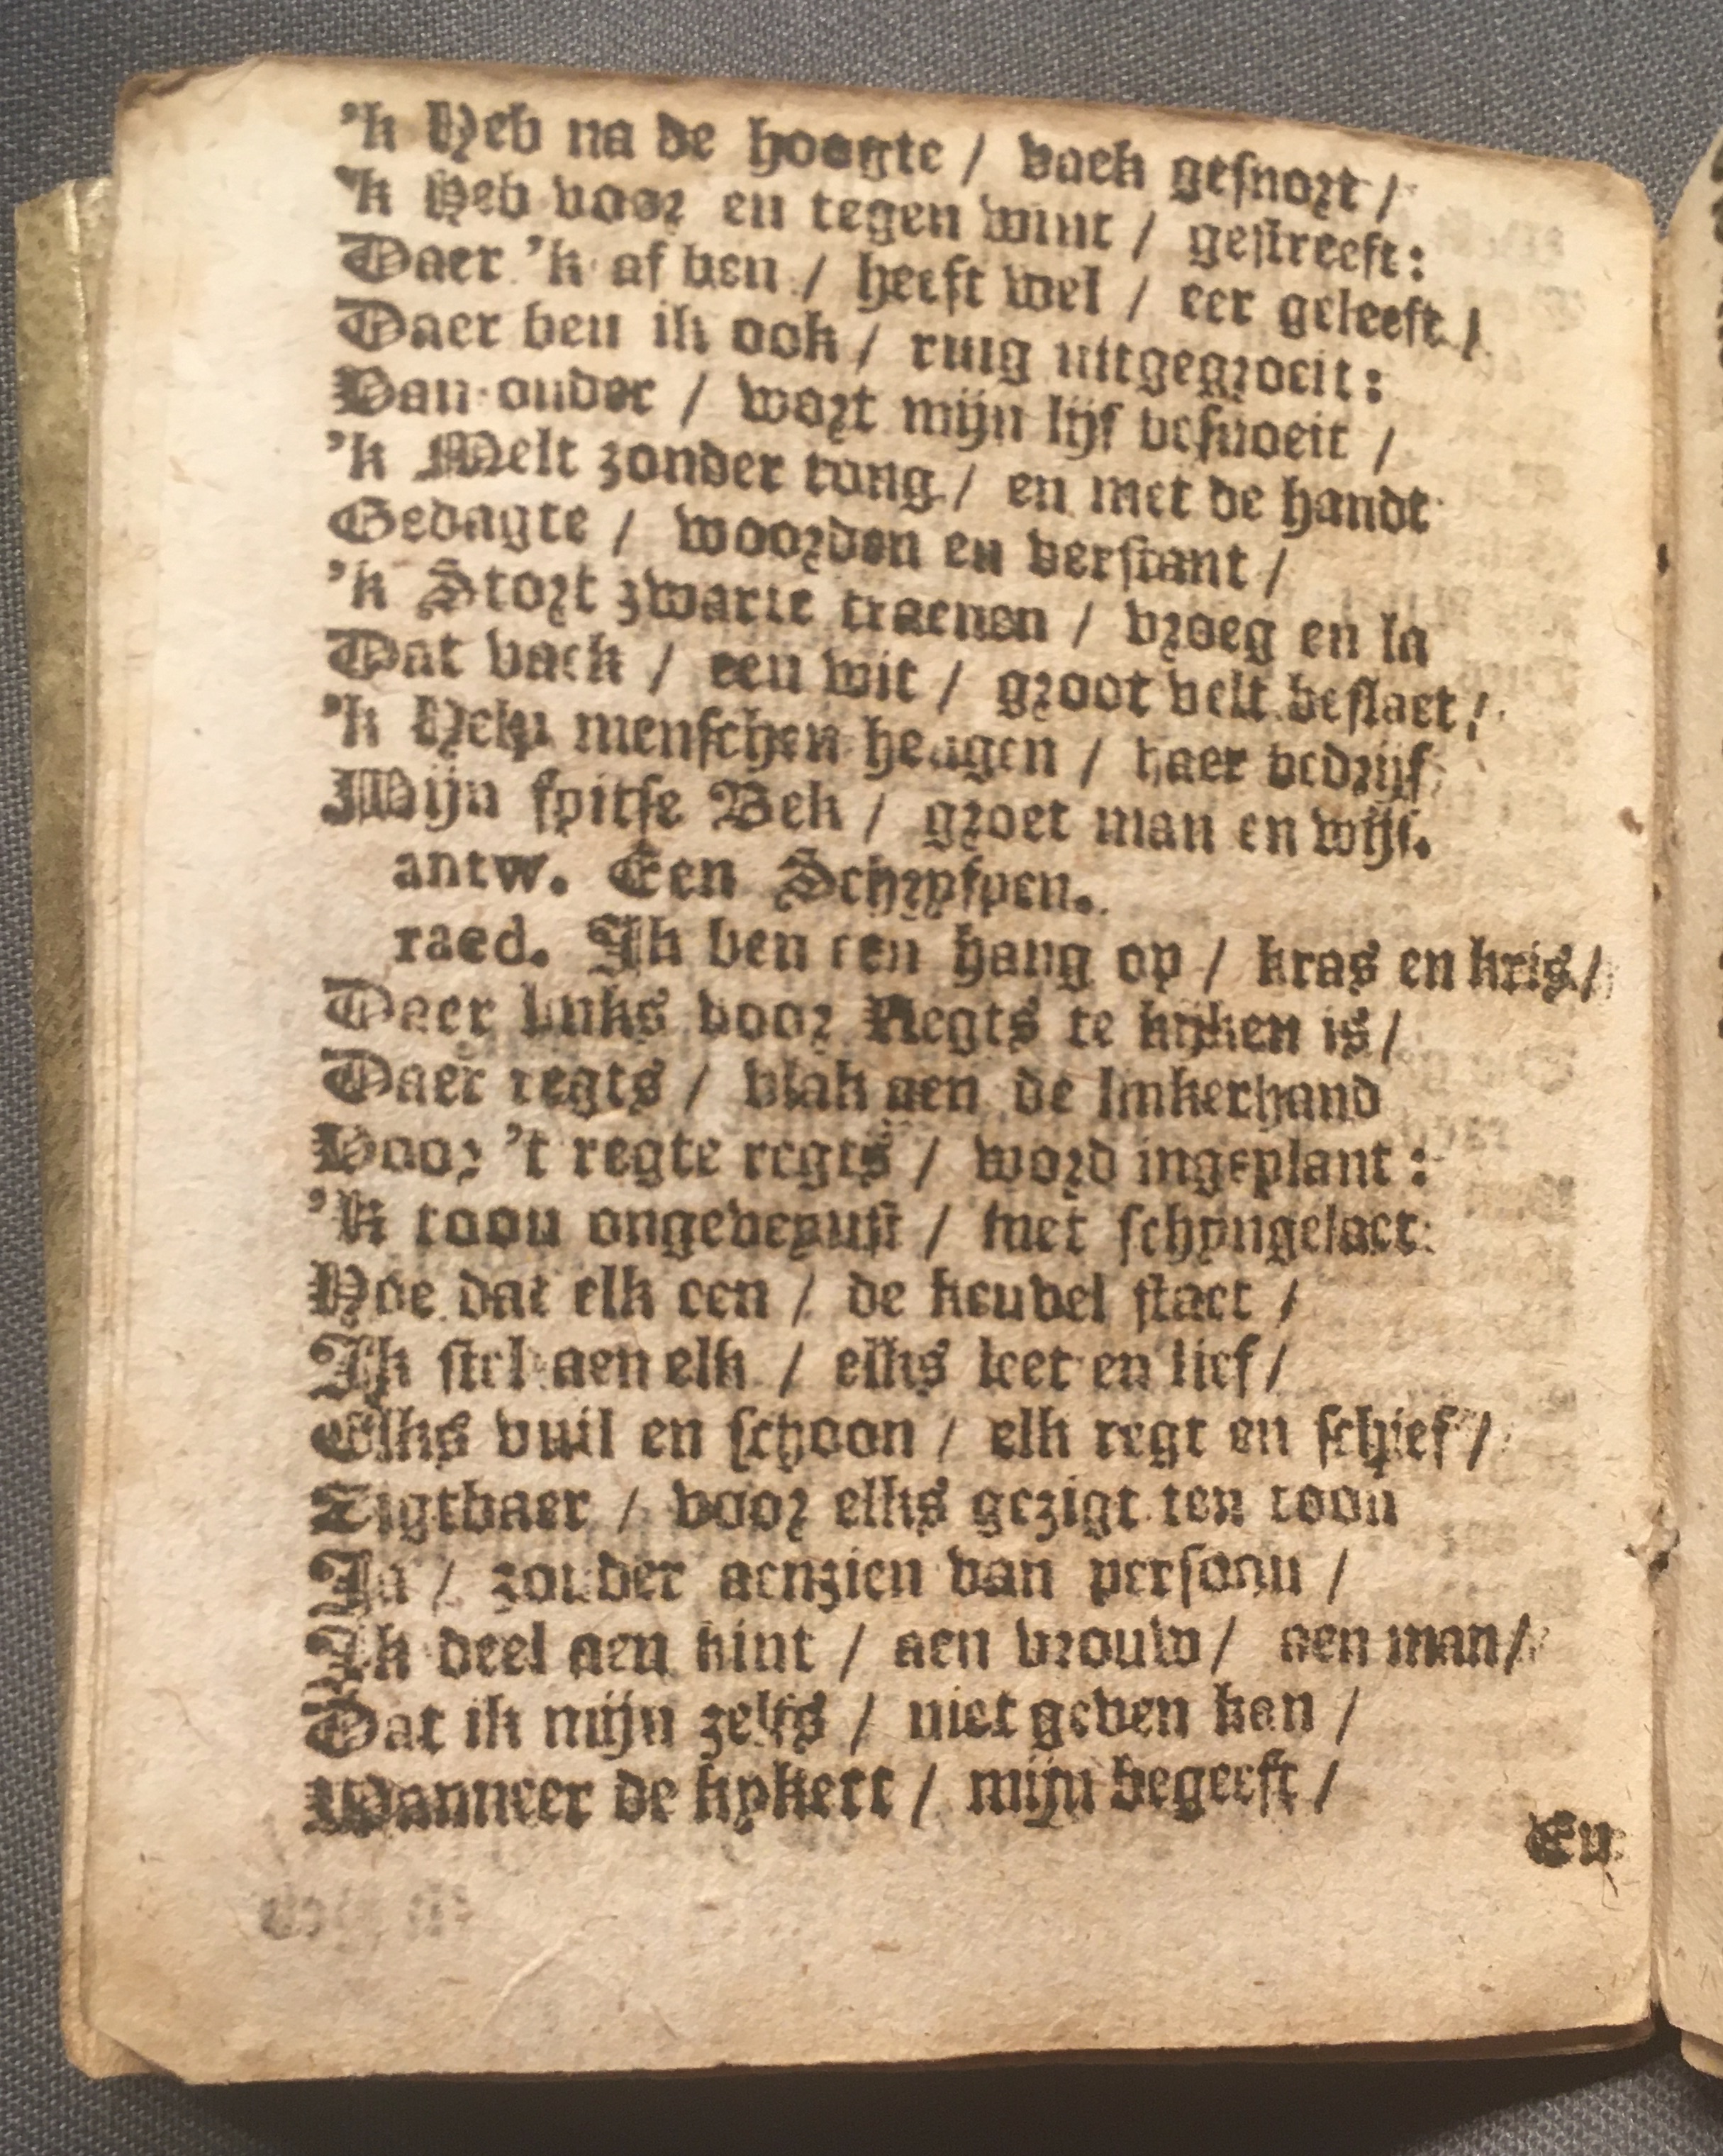 'k Heb na de hoogte / vaek gesnort /
'k Heb voor en tegen wint / gestreeft:
Daer 'k af ben / heeft wel / eer geleeft /
Daer ben ik ook / ruig uitgegroeit:
Van onder / wort mijn lijf besnoeit /
'k Melt zonder tong / en met de handt
Gedagte / woorden en verstant /
'k Stort zwarte traenen / vroeg en la
Dat vaek / een wit / groot velt beslaet /
'k Help menschen heugen / haer bedrijf
Mijn spitse Bek / groet man en wijf.
antw. Een Schryfpen.
raed. Ik ben een hang op / kras en kris /
Daer links voor Regts te kijken is /
Daer regts / vlak aen de linkerhand
Voor 't regte regts / word ingeplant:
'k toon ongeveynst / met schyngelaet
Hoe dat elk een / de keuvel staet /
Ik stel aen elk / elks leet en lief /
Elks vuil en schoon / elk regt en schief /
Zigtbaer / voor elks gezigt ten toon
Ja / zonder aenzien van persoon /
Ik deel aen kint / aen vrouw / aen man /
Dat ik mijn zelfs / niet geven kan /
Wanneer de kykert / mijn begeeft /
En